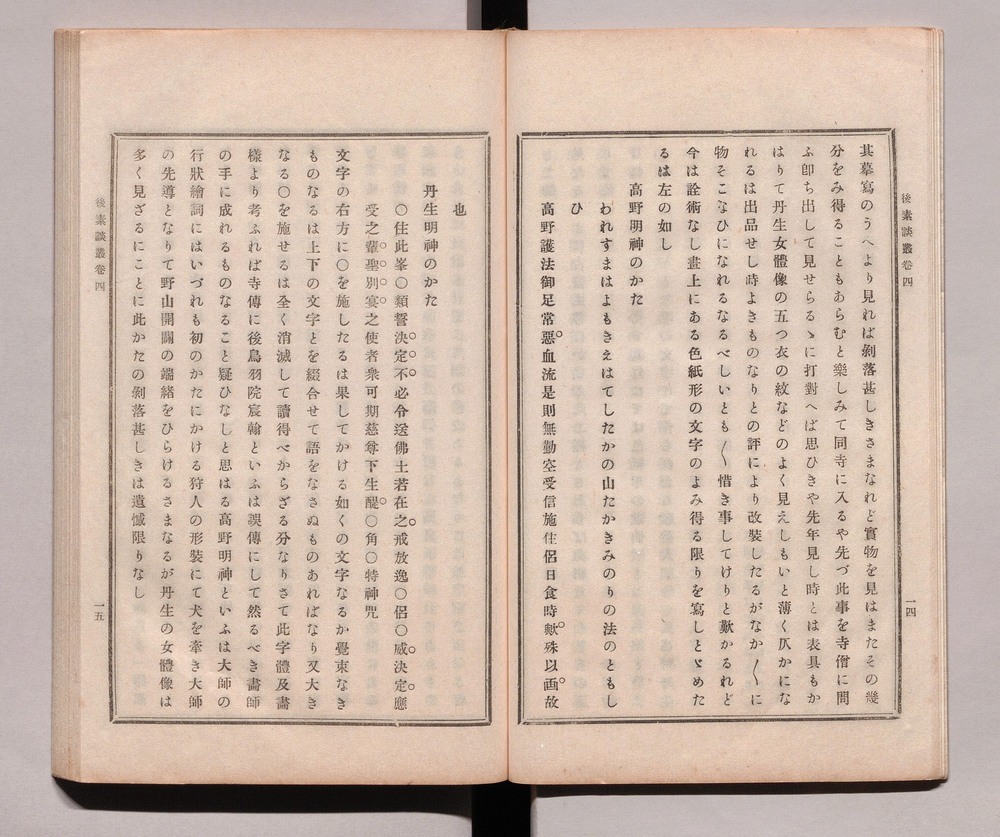 後素談叢卷四
一四
其摹寫のうへより見れば剝落甚しきさまなれど實物を見はまたその幾
分をみ得ることもあらむと樂しみて同寺に入るや先づ此事を寺僧に問
ふ卽ち出して見せらるゝに打對へば思ひきや先年見し時とは表具もか
はりて丹生女體像の五つ衣の紋などのよく見えしもいと薄く仄かにな
れるは出品せし時よきものなりとの評により改裝したるがなか〳〵に
物そこなひになれるなるべしいとも〳〵惜き事してけりと歎かるれど
今は詮術なし畫上にある色紙形の文字のよみ得る限りを寫しとゞめた
るは左の如し
高野明神のかた
われすまはよもきえはてしたかの山たかきみのりの法のともし
ひ
高野護法御足常惡血流是則無勤空受信施住侶日食時歟殊以画故
也
丹生明神のかた
〇住此峯〇類誓決定不必令送佛土若在之戒放逸〇侶〇威決定應
受之輩聖別宴之使者衆可期慈尊下生醍〇角〇特神咒
文字の右方に〇を施したるは果してかける如くの文字なるか覺束なき
ものなるは上下の文字とを綴合せて語をなさぬものあればなり又大き
なる〇を施せるは全く消滅して讀得べからざる分なりさて此字體及畫
樣より考ふれば寺傳に後鳥羽院宸翰といふは誤傳にして然るべき畫師
の手に成れるものなること疑ひなしと思はる高野明神といふは大師の
行狀繪詞にはいづれも初のかたにかける狩人の形裝にて犬を牽き大師
の先導となりて野山開闢の端緒をひらけるさまなるが丹生の女體像は
多く見ざるにことに此かたの剝落甚しきは遺憾限りなし
後素談叢卷四
一五